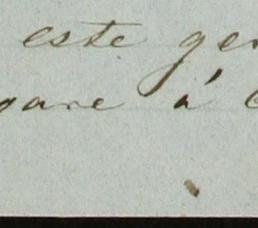 este ger
gare á